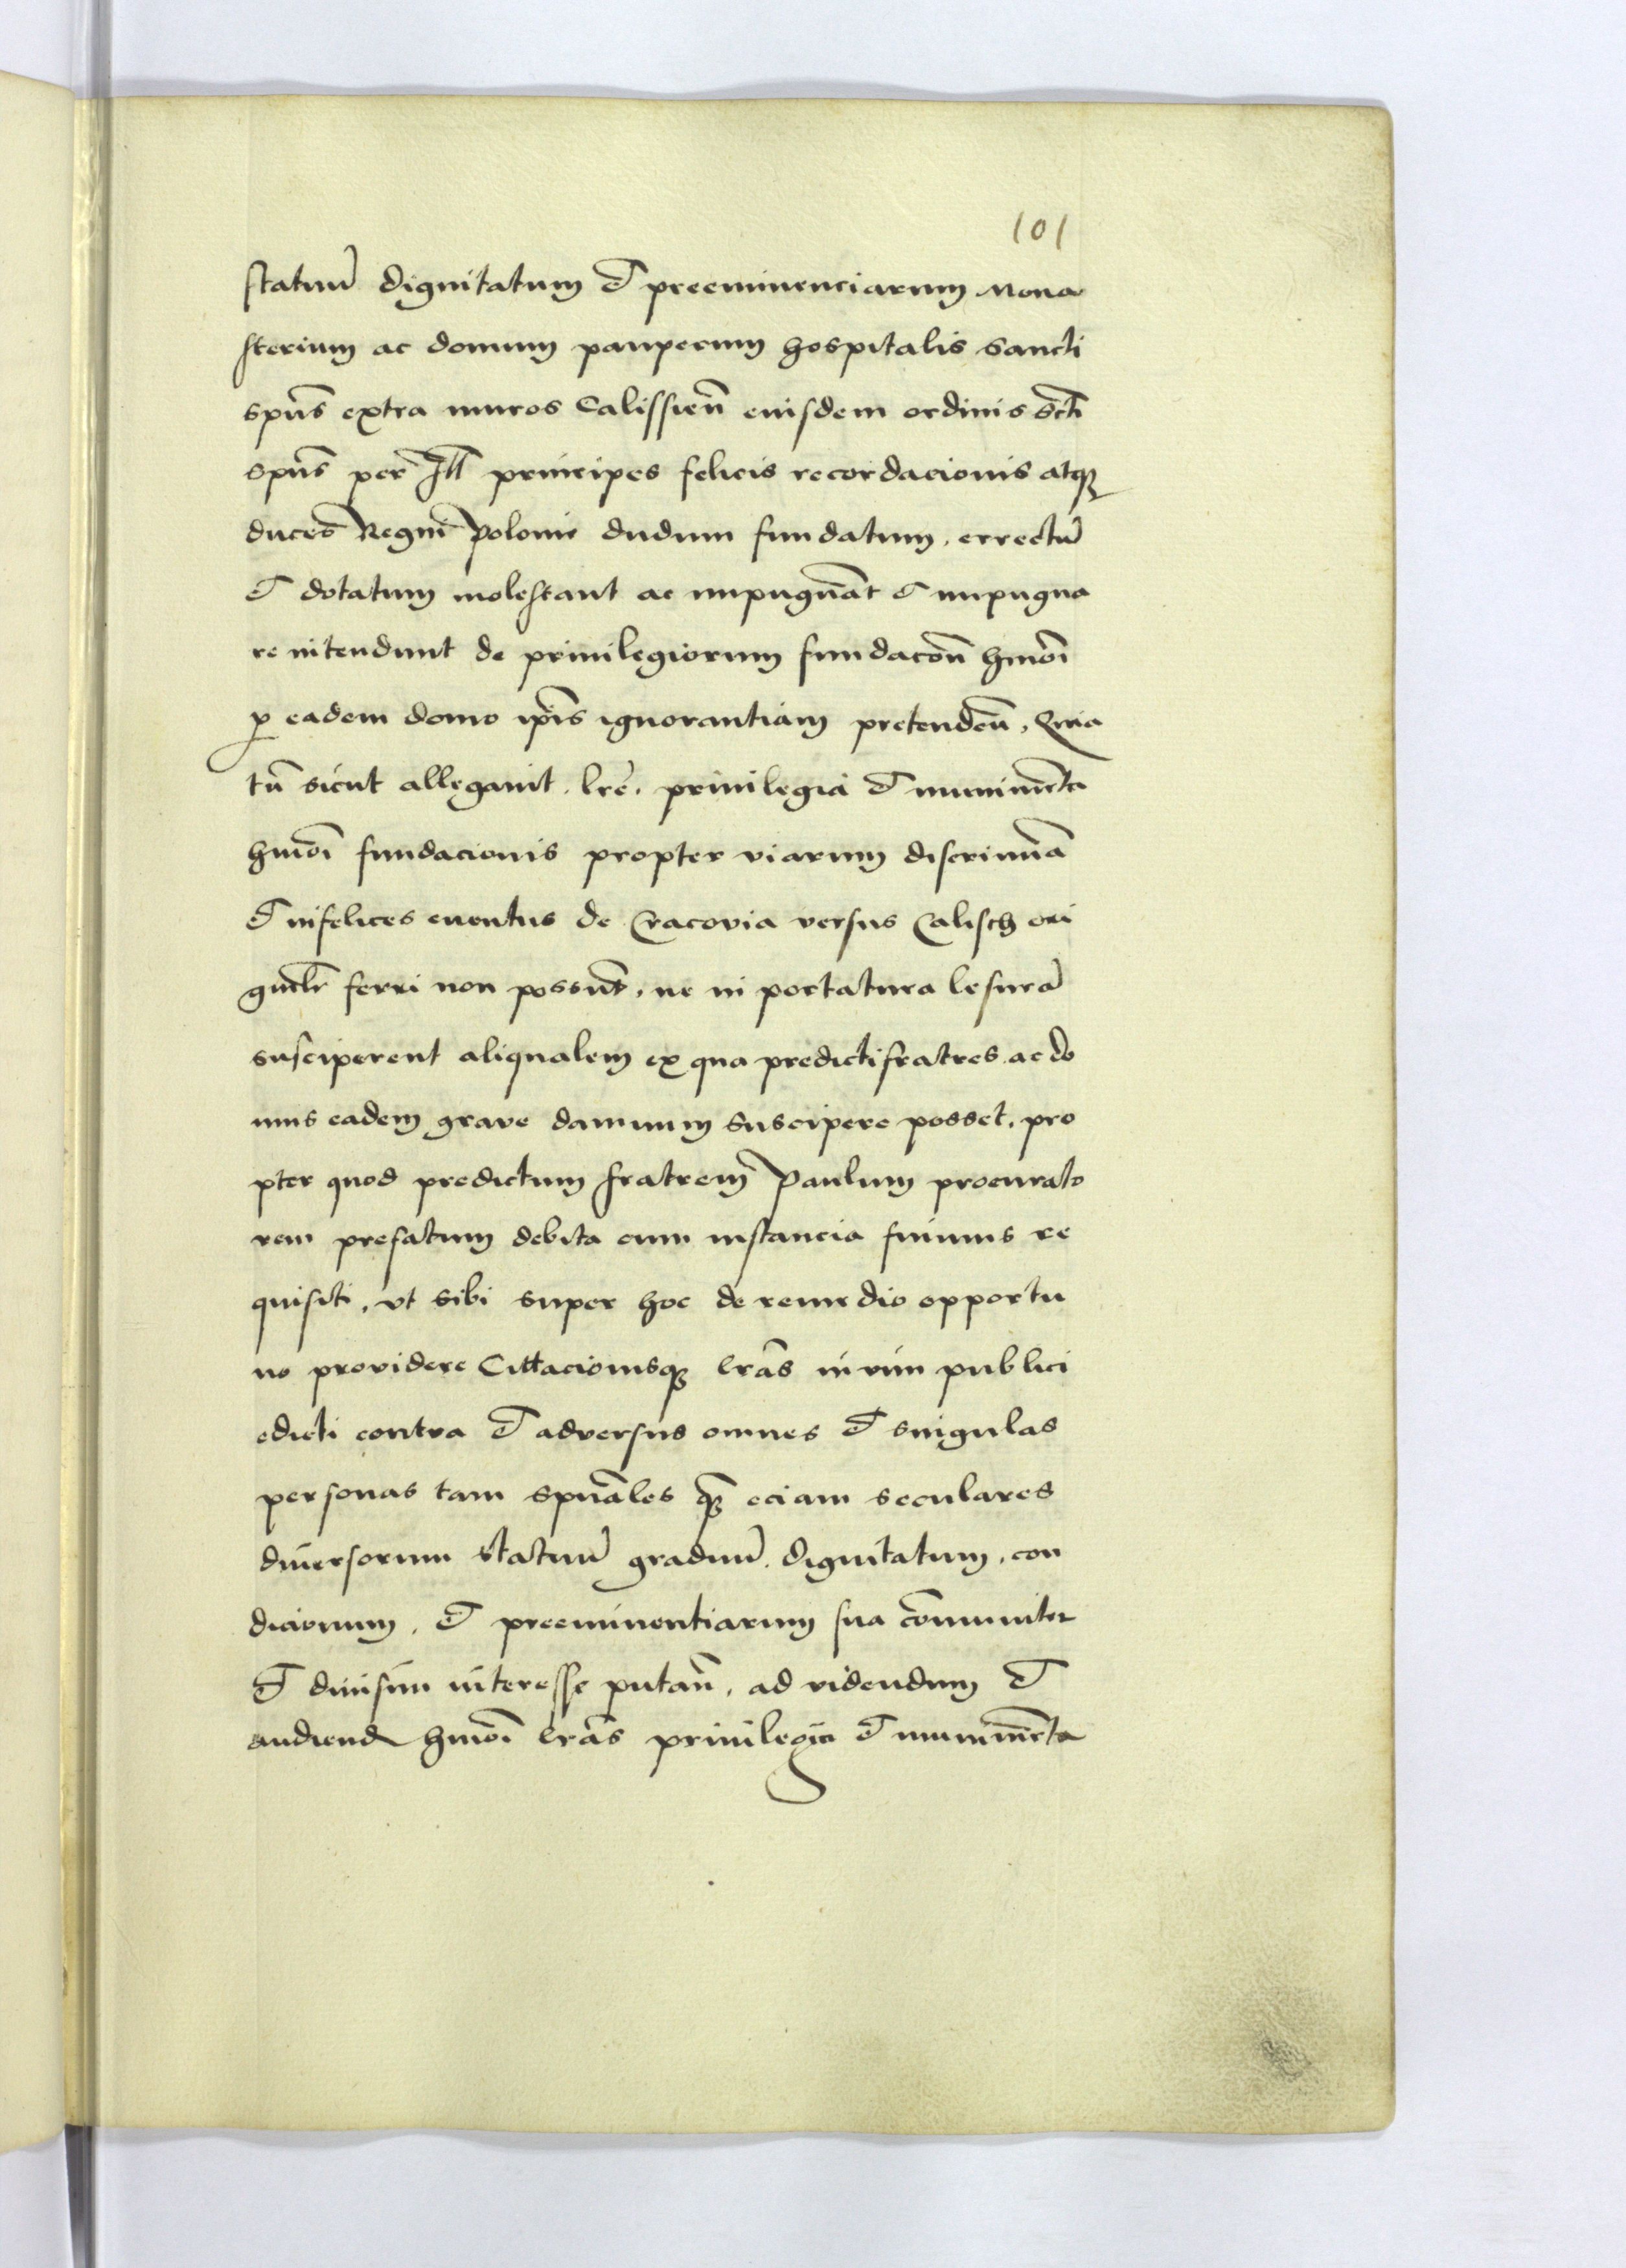 101
statuū dignitatum et preeminenciarum Mona
sterium ac domum pauperum hospitalis Sancti
spūs extra muros Calissieñ eiusdem ordinis sc̄ti
spūs per Ill̄ principes felicis recordacionis atqȝ
duces Regni Polonie dudum fundatum, errectū
et dotatum molestant ac impugnāt et impugna
re intendunt de priuilegiorum fundacōn̄ hm̄ōi
ꝑ eadem domo ip̄is ignorantiam pretendeñ, Quia
tn̄ sicut allegauit, lr̄e, priuilegia et munimēta
hm̄ōi fundacionis propter viarum discrimīa
et infelices euentus de Cracovia versus Calisch ori
gnclr̄ ferri non possūt, ne in portatura lesurā
susciperent aliqualem ex qua predicti fratres ac do
mus eadem grave damnum suscipere posset, pro
pter quod predictum fratrem Paulum procurato
rem prefatum debita cum instancia fuimus re
quisiti, vt sibi super hoc de remedio opportu
no providere Cittacionisqȝ lrās in vim publici
edicti contra et adversus omnes et singulas
personas tam spūales qȝ̄ eciam seculares
diuersorum statuū graduū, dignitatum, con
dicionum, et preeminentiarum sua cōmuniter
et diuisim interesse putañ, ad videndum et
audiend hm̄ōi lrās priuilegia et munimēta